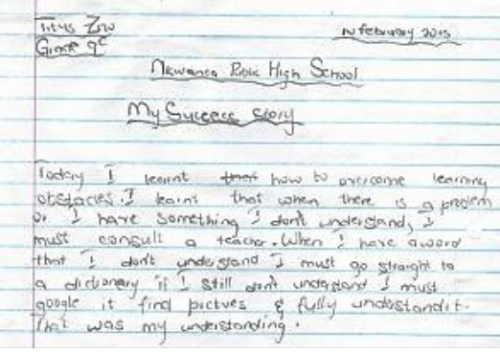 Titus Zim
Grade 9c
12 February 2015
Nkwanca Public High School
My Success Story
Today I learnt how to overcome learning
obstacles. I learnt that when there is a problem
or I have something I don't understand, I
must consult a teacher. When I have aword
that I don't understand I must go straight to
a dictionary if I still don't understand I must
google it find pictures & fully understand it.
That was my understanding.